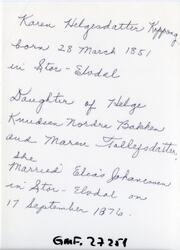 Karen Helgesdatter Koppang
born 28 March 1851
in Stor-Elvdal
Daughter of Helge
Knudsen Nordre Bakken
and Maren Tollefsdatter.
She
Married Elias Johannesen
in Stor-Elvdal on
17 September 1876.
GMF. 27251